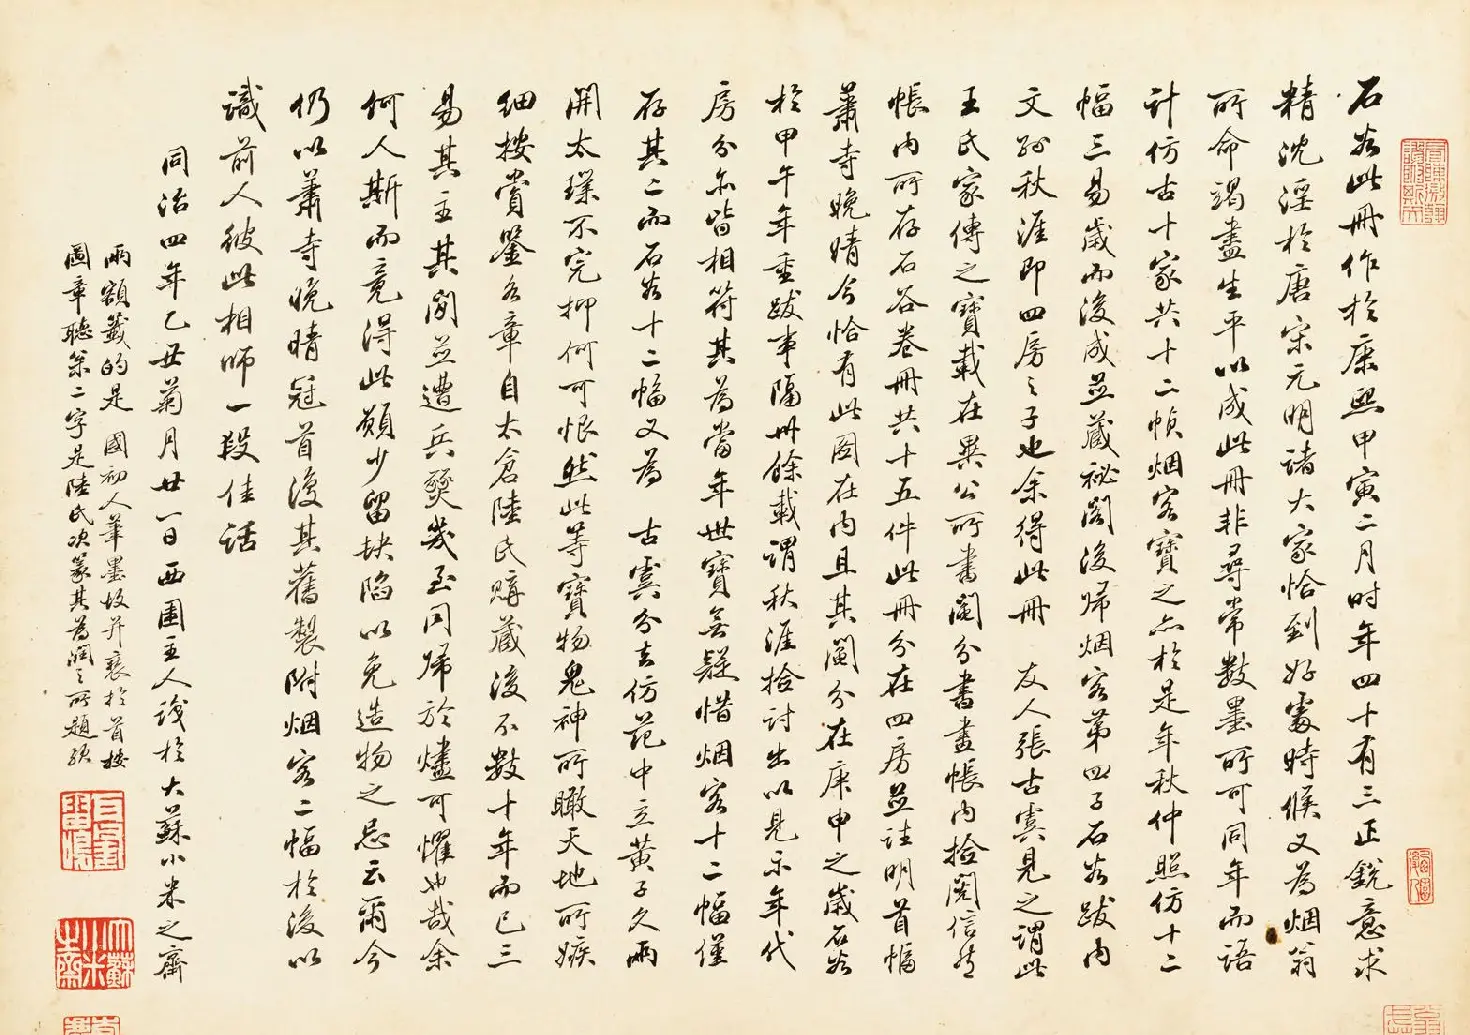 石谷此冊作於康熙甲寅二月时年四十有三正銳意求
精沈淫於唐宋元明諸大家恰到好處時候又為烟翁
所命竭盡生平以成此冊非尋常數墨所可同年而語
計仿古十家共十二幀烟客寶之亦於是年秋仲照仿十二
幅三易歲而後成並藏祕閣後歸烟客第四子石谷跋内
文孙秋涯即四房之子也余得此冊 友人張古虞見之謂此
王氏家傳之寶載在異公所書鬮分書畫帳内撿閱信然
帳内所存石谷卷冊共十五件此冊分在四房並註明首幅
蕭寺晚晴今恰有此図在内且其鬮分在庚申之歲石谷
於甲午年重跋事隔卅餘載謂秋涯拾討出以見示年代
房分亦皆相符其為當年世寶無疑惜烟客十二幅僅
存其二而石谷十二幅又為 古虞分去仿范中立黃子久兩
開太璞不完抑何可恨然此等寶物鬼神所瞰天地所嫉
細按賞鑒各章自太倉陸氏購藏後不數十年而已三
易其主其間並遭兵燹幾至同歸於燼可懼也哉余
何人斯而竟得此願少留缺陷以免造物之忌云爾今
仍以蕭寺晚晴冠首復其舊製附烟客二幅於後以
識前人彼此相师一段佳話
同治四年乙丑菊月廿一日西圃主人識於大蘇小米之齋
兩額籤的是 國初人筆墨故并裹於首按
圖章聽松二字是陸氏次篆其為潤之所題㱕
大蘇小米之齋